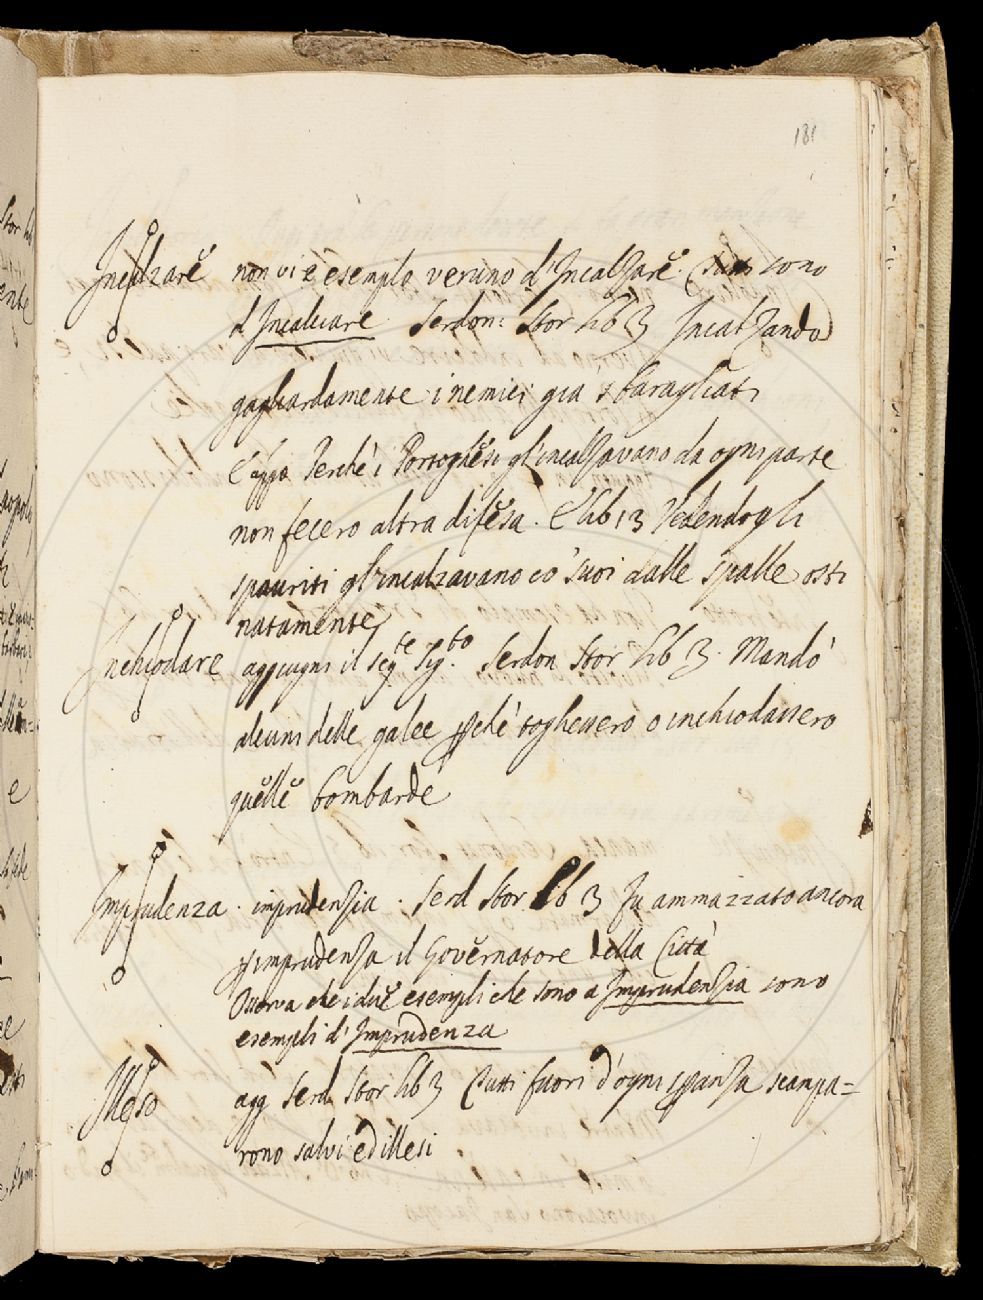 181
Incalzare non vi è esempio veruno d'Incalzare. Tutti sono
d'Incalciare. Serdon: Stor lib 3 Incalzando
gagliardamente i nemici già sbaragliati
E appo Perchè i Portoghesi gl'incalzavano da ogni parte
non fecero altra difesa. E lib 13 Vedendogli
spauriti gl'incalzavano co' suoi dalle spalle osti
natamente
Inchiodare aggiugni il segte sigto. Serdon Stor lib 3. Mandò
alcuni delle galee pchè togliessero o inchiodassero
quelle bombarde
Imprudenza. imprudenzia. Serd Stor lib 3 fu ammazzato ancora
p imprudenza il Governatore della Città
Osserva che i due esempli che sono a Imprudenzia sono
esempli d'Imprudenza
Illeso agg Serd Stor lib 3 Tutti fuori d'ogni speranza scampa=
rono salvi ed illesi